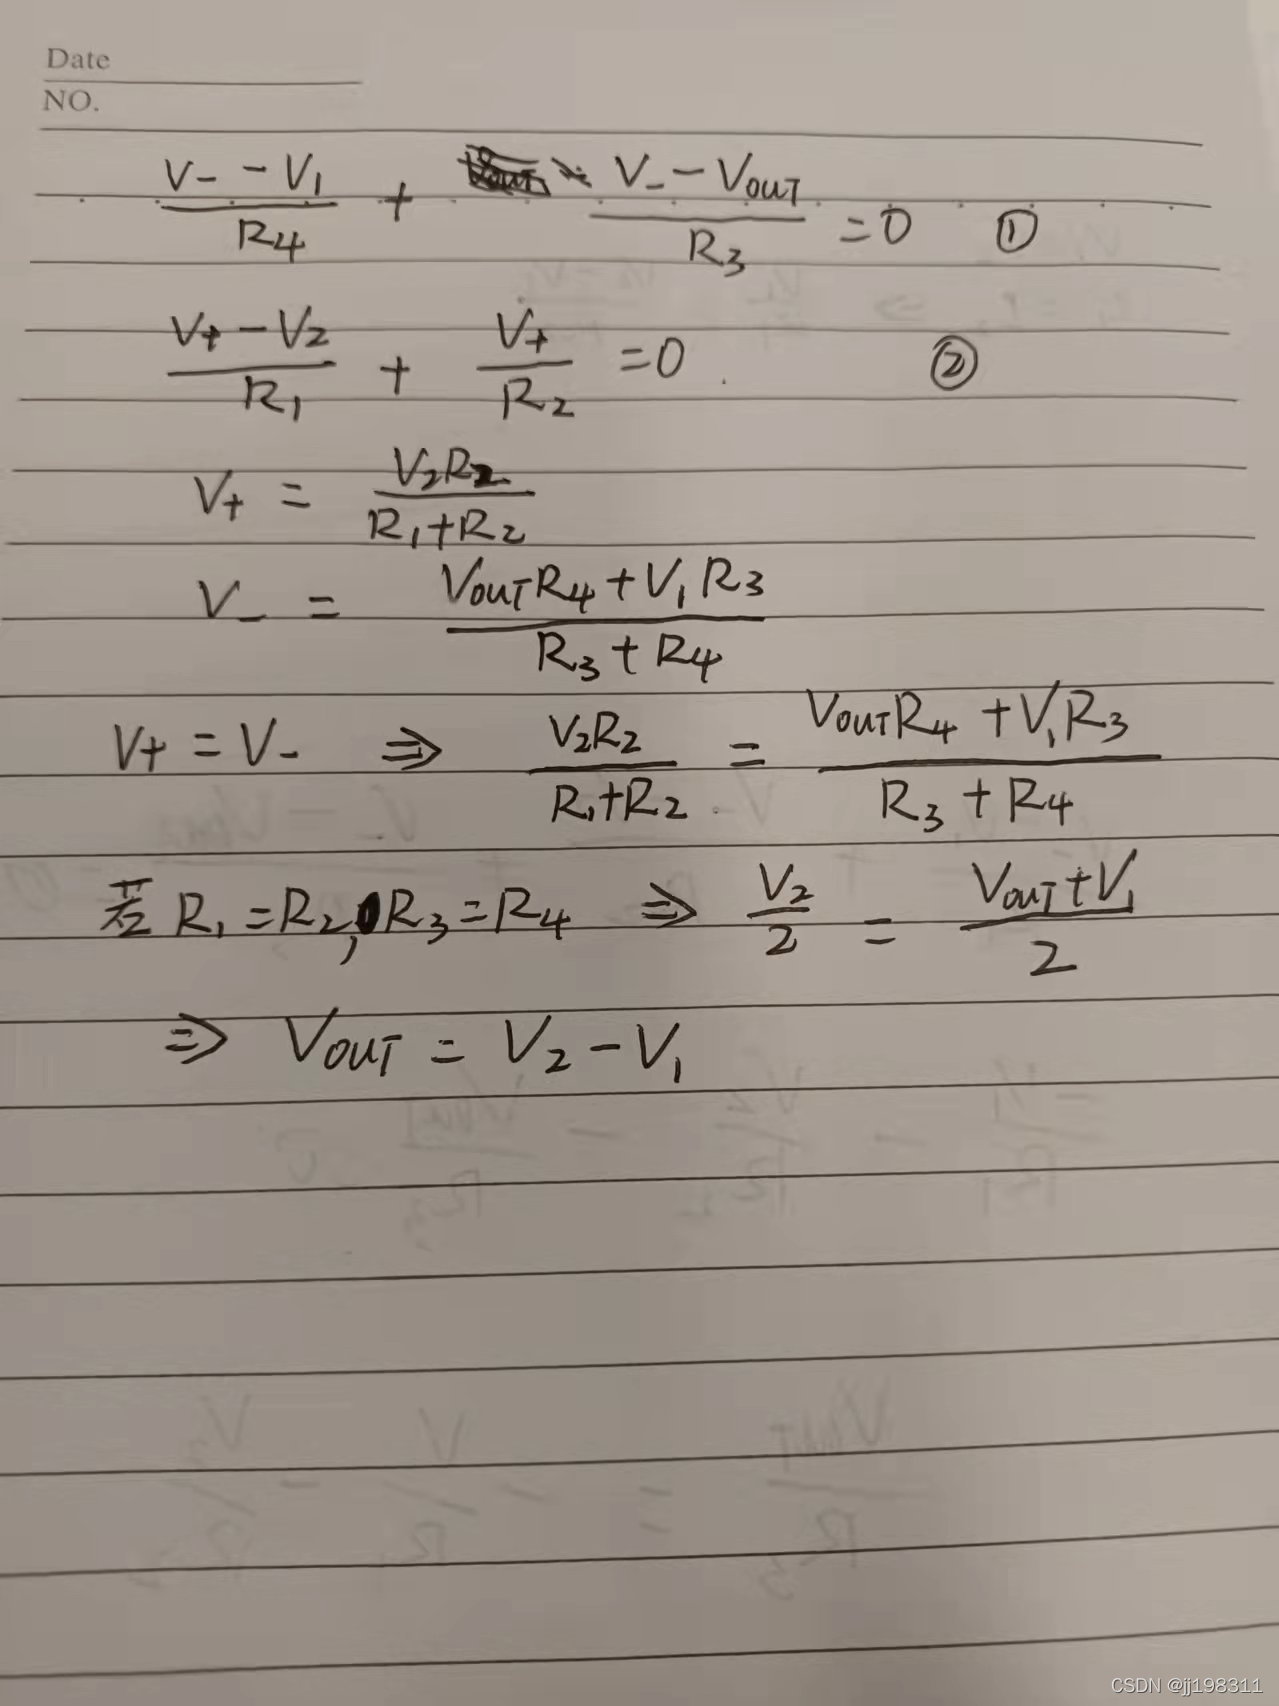 Date
NO.
(V- - V1)/R4 + (V- - VOUT)/R3 = 0 ①
(V+ - V2)/R1 + V+/R2 = 0 ②
V+ = V2R2/(R1+R2)
V- = (VOUTR4 + V1R3)/(R3 + R4)
V+ = V- ⇒ V2R2/(R1+R2) = (VOUTR4 + V1R3)/(R3 + R4)
若 R1 = R2, R3 = R4 ⇒ V2/2 = (VOUT + V1)/2
⇒ VOUT = V2 - V1
CSDN @jj198311